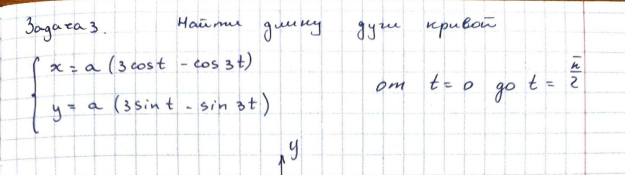 Задача 3. Найти длину дуги кривой
x = a (3cost - cos 3t)
y = a (3sint - sin 3t)
от t = 0 до t = π/2
y